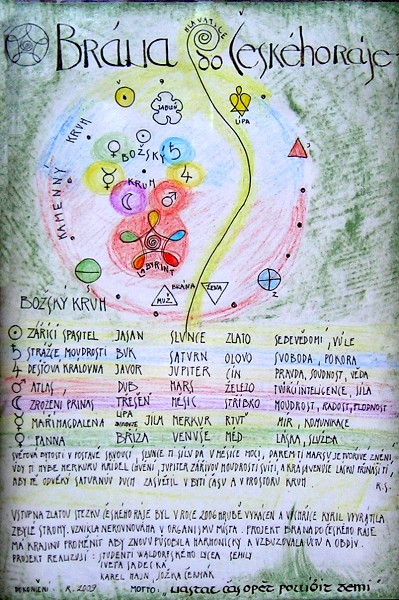 HLAVATICE
BRÁNA do ČESKÉHO RÁJE
V
JABLOŇ
LÍPA
KAMENNÝ KRUH
BOŽSKÝ
KRUH
LABYRINT
BRÁNA
MUŽ ŽENA
S
Z
BOŽSKÝ KRUH
ZÁŘÍCÍ SPASITEL JASAN SLUNCE ZLATO SEBEVĚDOMÍ, VŮLE
STRÁŽCE MOUDROSTI BUK SATURN OLOVO SVOBODA, POKORA
DEŠŤOVÁ KRÁLOVNA JAVOR JUPITER CÍN PRAVDA, SOUDNOST, VĚDA
ATLAS DUB MARS ŽELEZO TVŮRČÍ INTELIGENCE, SÍLA
ZROZENÍ PŘINÁŠ TŘEŠEŇ MĚSÍC STŘÍBRO MOUDROST, RADOST, PLODNOST
LÍPA
MÁŘÍ MAGDALENA JILM MERKUR RTUŤ MÍR, KOMUNIKACE
PANNA BŘÍZA VENUŠE MĚĎ LÁSKA, SLUŽBA
SVĚTOVÁ BYTOSTI V POSTAVĚ SKVOUCÍ, SLUNCE TI SÍLU DÁ V MĚSÍCE MOCI, DAREM TI MARSU JE TVOŘIVÉ ZNĚNÍ,
VDY TI HÝBE MERKURU KŘÍDEL CHVĚNÍ, JUPITER ZÁŘIVOU MOUDROSTÍ SVÍTÍ, A KRÁSA VENUŠE LÁSKU PŘINÁŠÍ TI,
ABY TĚ ODVĚKÝ SATURNUV DUCH ZASVĚTIL V BYTÍ ČASU A V PROSTORU KRUH R.S.
VSTUP NA ZLATOU STEZKU ČESKÉHO RÁJE BYL V ROCE 2006 HRUBĚ VYKÁCEN A VICHŘICE KYRIL VYVRÁTILA
ZBYLÉ STROMY. VZNIKLA NEROVNOVÁHA V ORGANISMU MÍSTA. PROJEKT BRÁNA DO ČESKÉHO RÁJE
MÁ KRAJINU PROMĚNIT ABY ZNOVU PŮSOBILA HARMONICKY A VZBUZOVALA ÚCTU A OBDIV.
PROJEKT REALIZUJÍ: STUDENTI WALDORFSKÉHO LYCEA SEMILY
IVETA SADECKÁ
KAREL HAJN, JOŽKA ČERMÁK
DOKONČENÍ R. 2009 MOTTO: NASTAL ČAS OPĚT POLÍBIT ZEMI